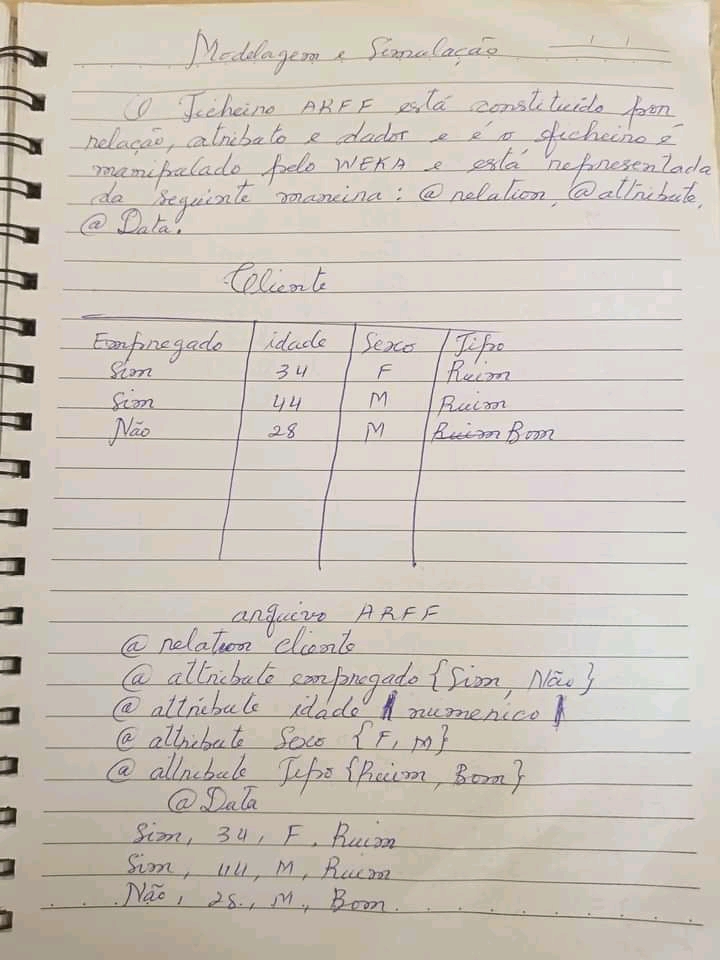 Modelagem e Simulação
O Ficheiro ARFF está constituído por
relação, atributo e dador e é o ficheiro é
manipulado pelo WEKA e está representada
da seguinte maneira: @ relation, @ attribute,
@ Data.
Cliente
Empregado idade Sexo Tipo
Sim 34 F Ruim
Sim 44 M Ruim
Não 28 M Ruim Bom
arquivo ARFF
@ relation cliente
@ attribute empregado {Sim, Não}
@ attribute idade numerico
@ attribute Sexo {F, M}
@ attribute Tipo {Ruim, Bom}
@ Data
Sim, 34, F, Ruim
Sim, 44, M, Ruim
Não, 28, M, Bom